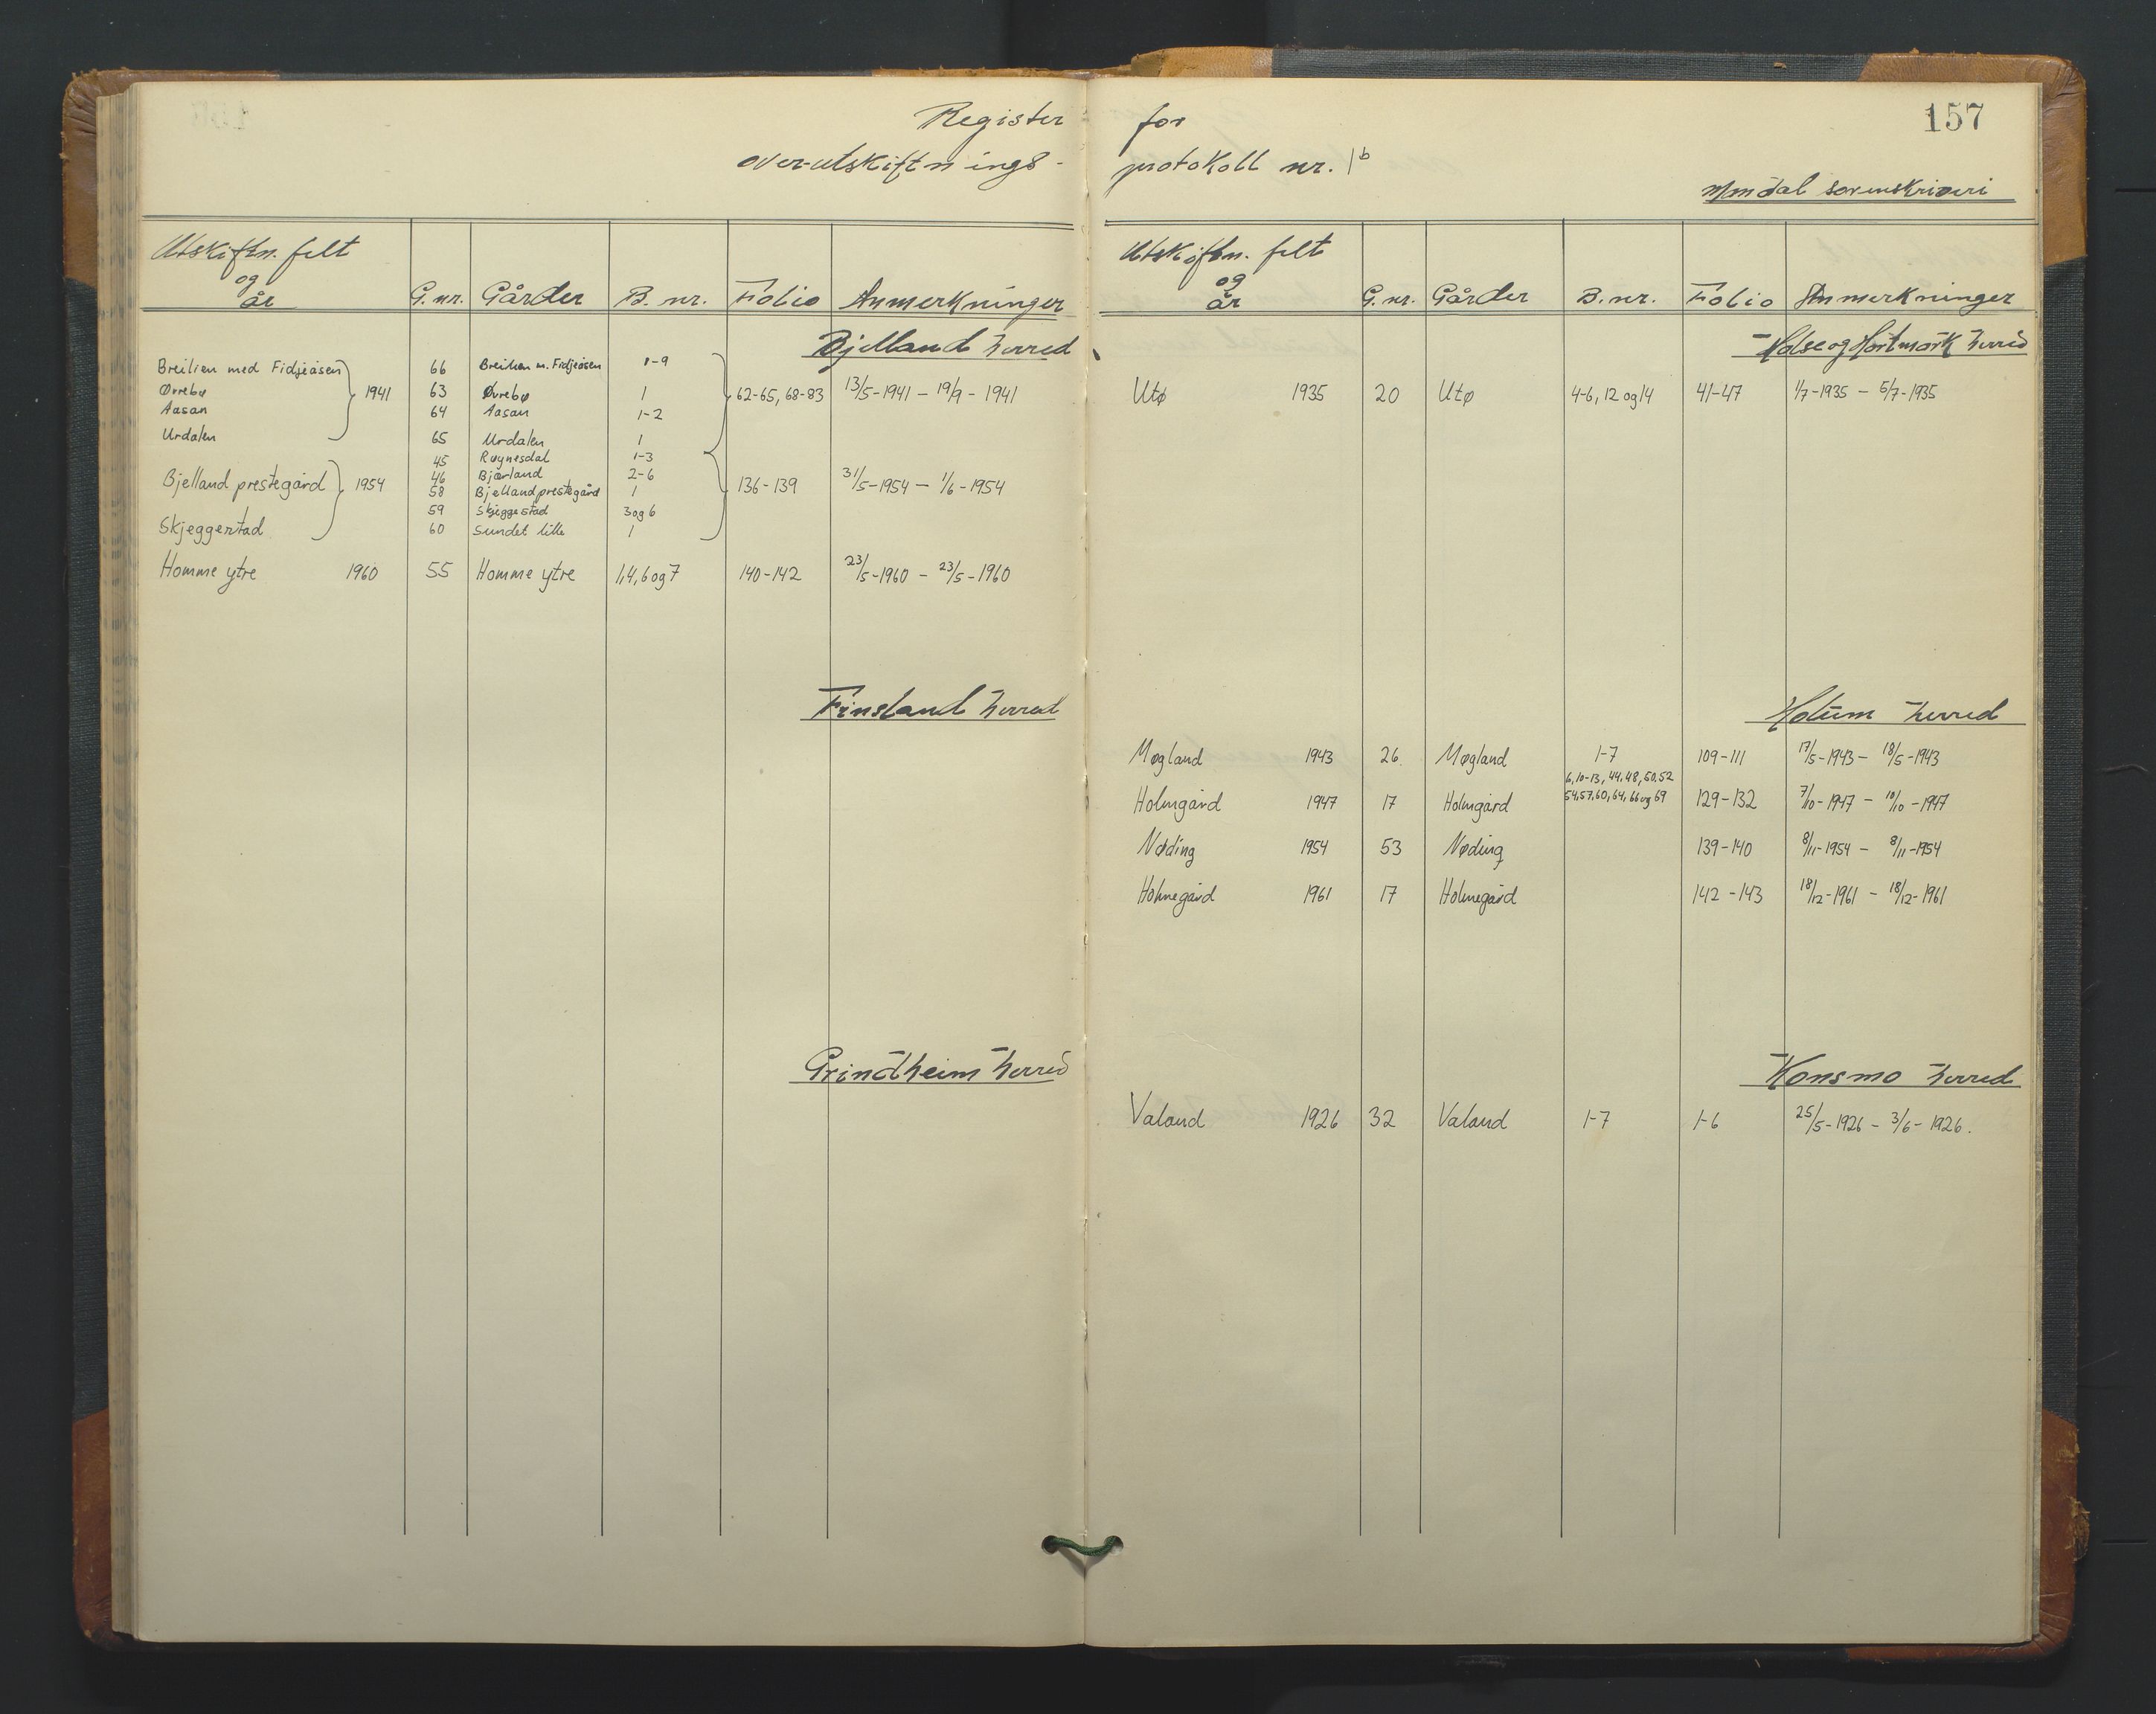 Register for 157
over-utskiftnings- protokoll nr. 1b
Mandal sorenskriveri
Utskiftn. felt
og
år G.nr. Gårder B. nr. Folio Anmerkninger
Bjelland herred
Breilien med Fidjeåsen 66 Breilien m. Fidjeåsen 1-9
Øvrebø 1941 63 Øvrebø 1 62-65, 68-83 13/5-1941 - 19/9 - 1941
Aasan 64 Aasan 1-2
Urdalen 65 Urdalen 1
45 Røynesdal 1-3
Bjelland prestegård 1954 46 Bjærland 2-6 136-139 31/5-1954 - 1/6-1954
58 Bjelland prestegård 1
59 Skjeggestad 3 og 6
Skjeggestad 60 Sundet lille 1
Homme ytre 1960 55 Homme ytre 1,4,6 og 7 140-142 23/5-1960 - 23/5-1960
Finsland herred
Grindheim herred
Utskiftn. felt
og
år G.nr. Gårder B.nr. Folio Anmerkninger
Halse og Hartmark herred
Utø 1935 20 Utø 4-6, 12 og 14 41-47 1/7-1935 - 5/7-1935
Holum herred
Møgland 1943 26. Møgland 1-7 109-111 17/5-1943 - 18/5-1943
6,10-13, 44,48, 50,52
Holmgård 1947 17 Holmgård 54,57,60,64,66 og 69 129-132 7/10-1947 - 10/10-1947
Nøding 1954 53 Nøding 139-140 8/11-1954 - 8/11-1954
Holmegård 1961 17 Holmegård 142-143 18/12-1961 - 18/12-1961
Konsmo herred
Valand 1926 32 Valand 1-7 1-6 25/5-1926 - 3/6-1926.